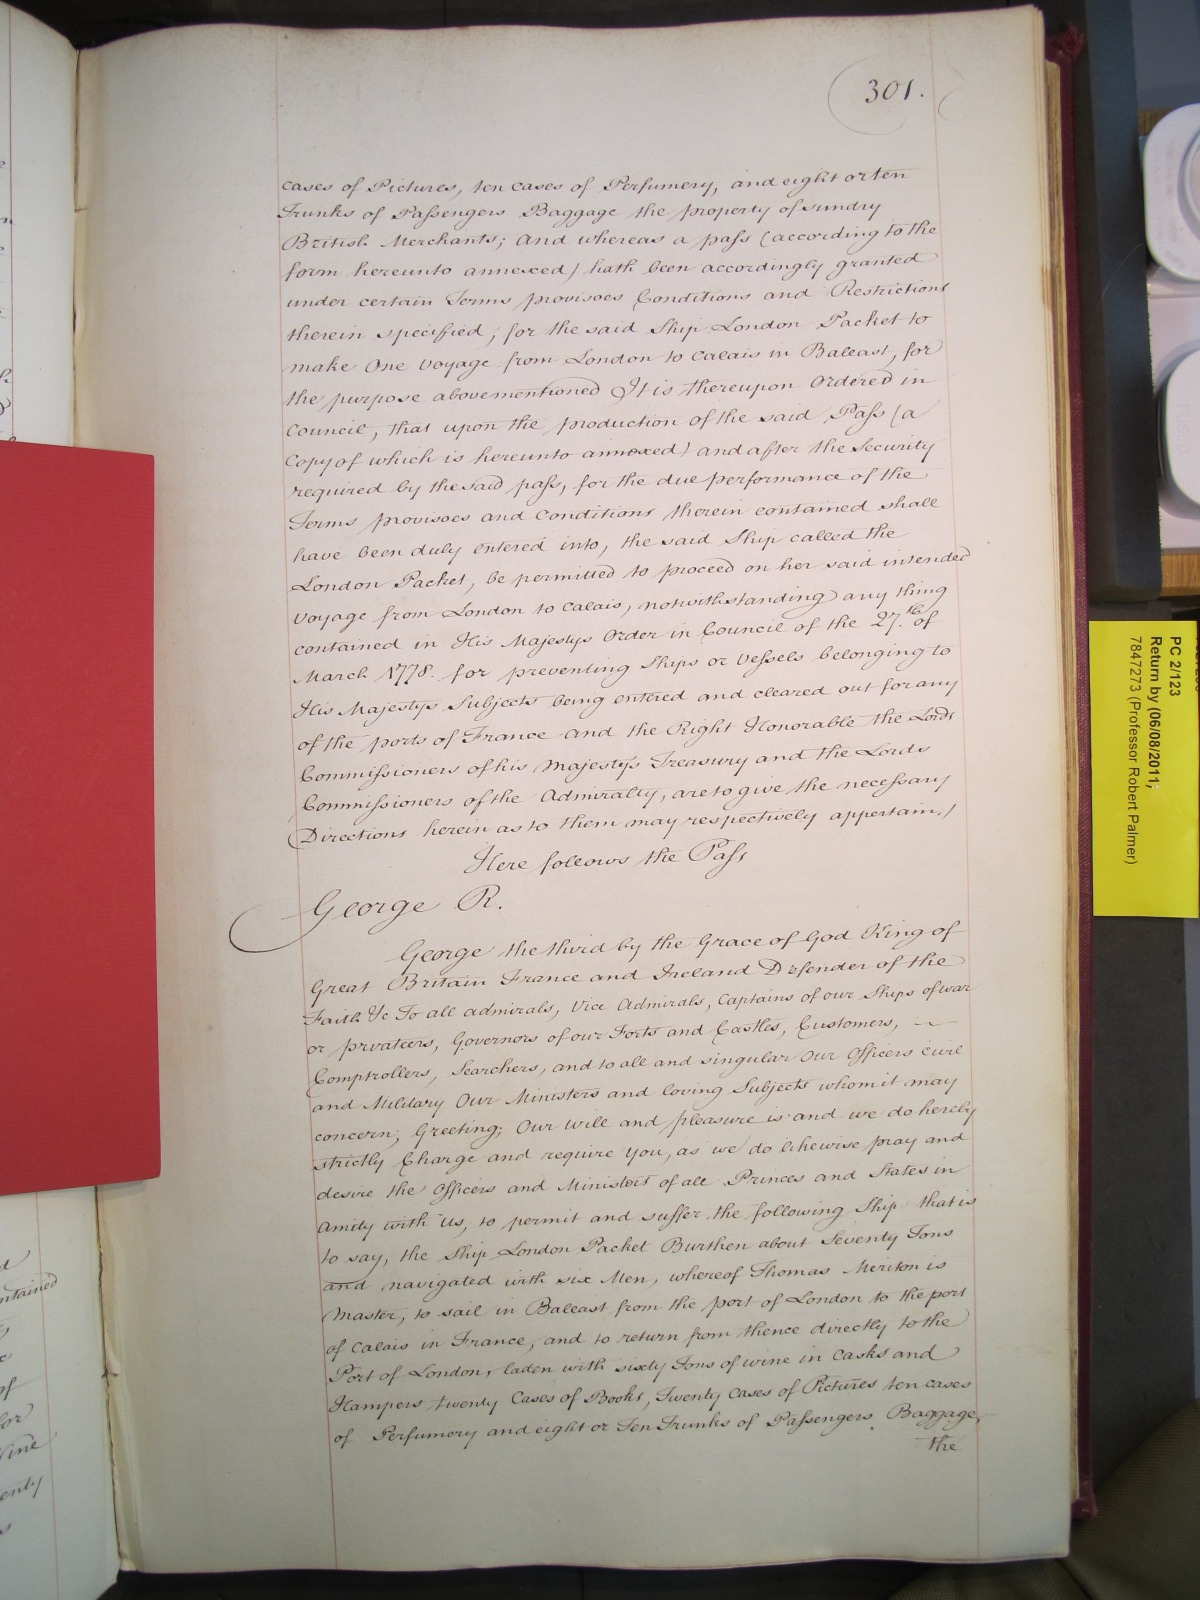 301.
cases of Pictures, ten cases of Perfumery, and eight or ten
Trunks of Passengers Baggage the property of sundry
British Merchants; And whereas a pass (according to the
form hereunto annexed) hath been accordingly granted
under certain Terms provisoes Conditions and Restrictions
therein specified, for the said Ship London Packet to
make One Voyage from London to Calais in Ballast, for
the purpose abovementioned It is thereupon Ordered in
Council, that upon the production of the said Pass (a
Copy of which is hereunto annexed) and after the Security
required by the said pass, for the due performance of the
Terms provisoes and Conditions therein contained shall
have been duly entered into, the said Ship called the
London Packet, be permitted to proceed on her said intended
Voyage from London to Calais, notwithstanding any thing
contained in His Majestys Order in Council of the 27.th of
March 1778. for preventing Ships or Vessels belonging to
His Majestys Subjects being entered and cleared out for any
of the ports of France and the Right Honorable the Lords
Commissioners of his Majestys Treasury and the Lords
Commissioners of the Admiralty, are to give the necessary
Directions herein as to them may respectively appertain./
Here follows the Pass
George R.
George the third by the Grace of God King of
Great Britain France and Ireland Defender of the
Faith &c To all admirals, Vice Admirals, Captains of our Ships of war
or privateers, Governors of our Forts and Castles, Customers,
Comptrollers, Searchers, and to all and singular Our Officers civil
and Military Our Ministers and loving Subjects whom it may
concern; Greeting; Our will and pleasure is and we do hereby
strictly Charge and require You, as we do likewise pray and
desire the Officers and Ministers of all Princes and States in
Amity with Us, to permit and suffer the following Ship that is
to say, the Ship London Packet Burthen about Seventy Tons
and navigated with six Men, whereof Thomas Meriton is
Master, to sail in Ballast from the port of London to the port
of Calais in France, and to return from thence directly to the
Port of London, laden with sixty Tons of wine in Casks and
Hampers twenty Cases of Books, Twenty Cases of Pictures ten cases
of Perfumery and eight or Ten Trunks of Passengers Baggage,
the
PC 2/123
Return by (06/08/2011;
7847273 (Professor Robert Palmer)